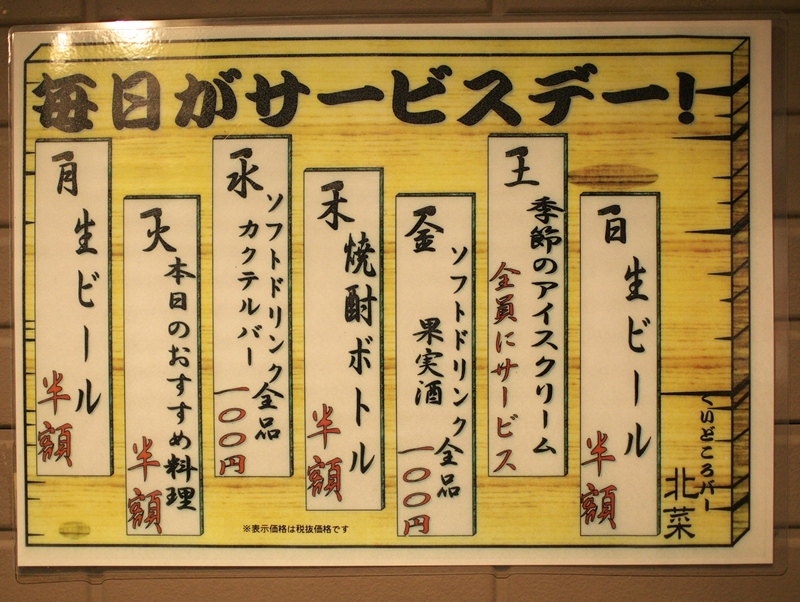 毎日がサービスデー!
月
生ビール
半額
火
本日のおすすめ料理
半額
水
ソフトドリンク全品
カクテルバー
一〇〇円
木
焼酎ボトル
半額
金
ソフトドリンク全品
果実酒
一〇〇円
土
季節のアイスクリーム
全員にサービス
日
生ビール
半額
くいどころバー
北菜
※表示価格は税抜価格です